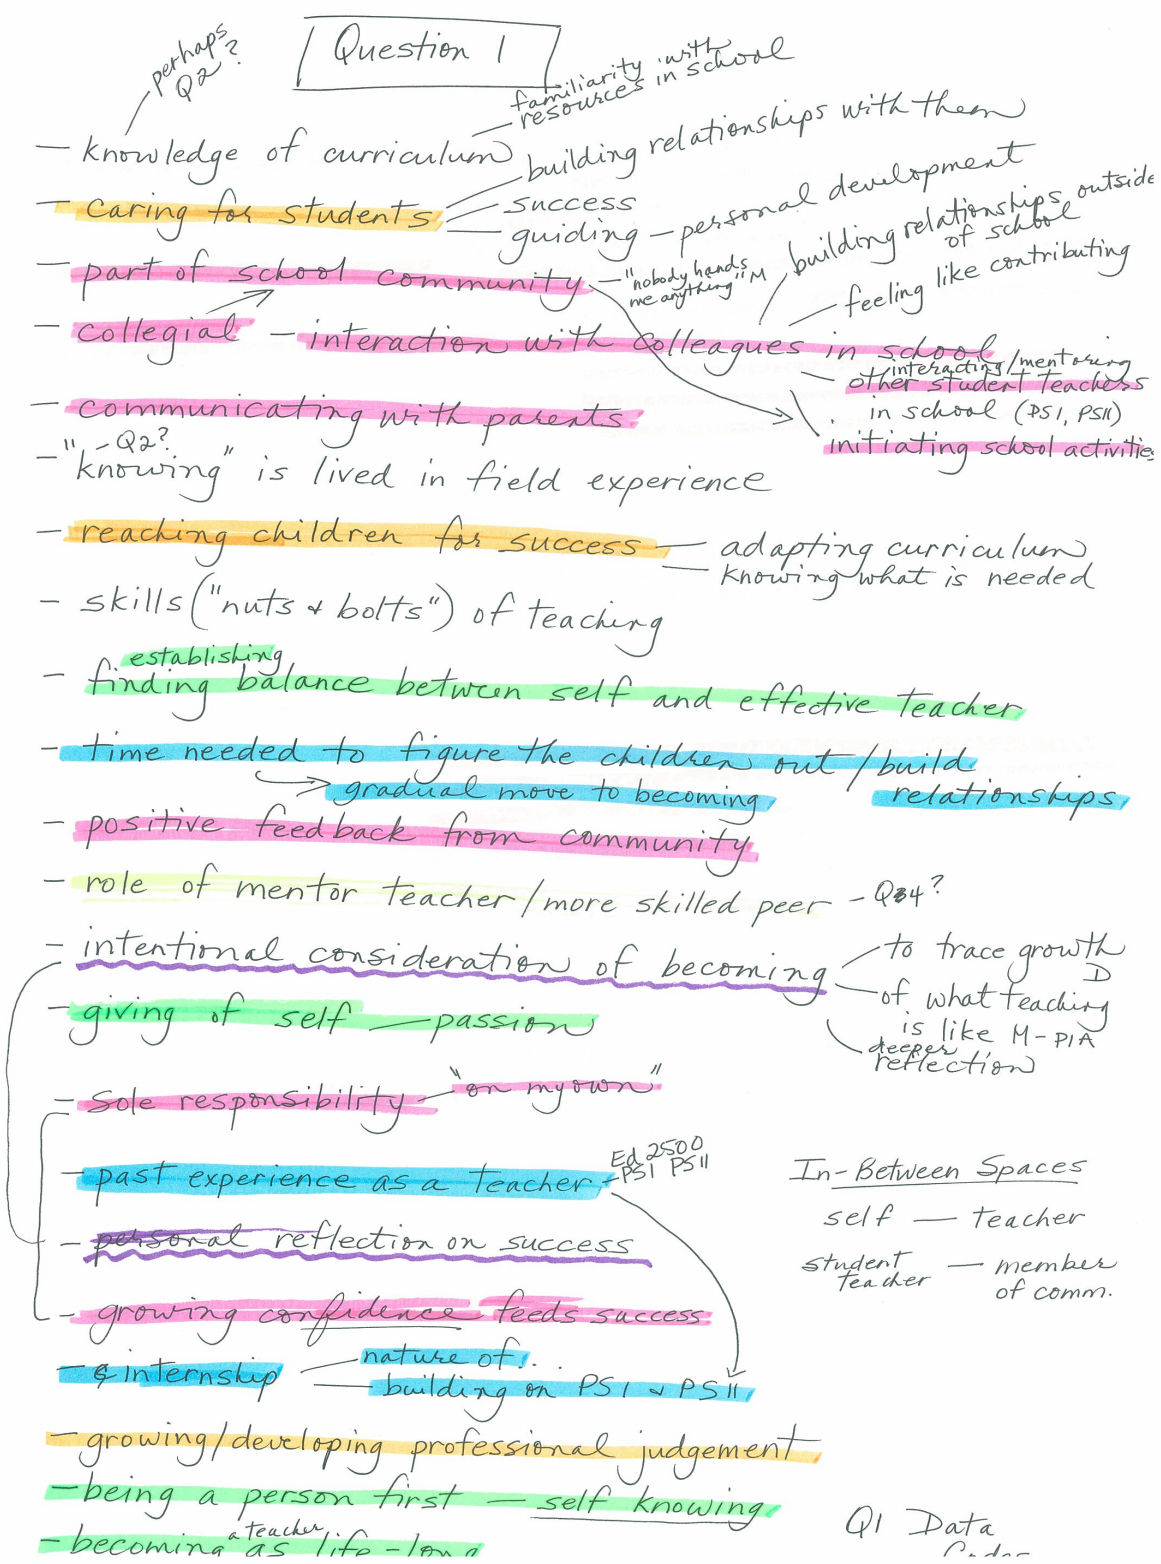 Question 1
perhaps
Q2?
familiarity with
resources in school
— knowledge of curriculum
building relationships with them
— caring for students
success
guiding — personal development
building relationships outside
of school
— part of school community — "nobody hands
me anything" M
feeling like contributing
— collegial — interaction with colleagues in school
interacting/mentoring
other student teachers
in school (PSI, PSII)
initiating school activities
— communicating with parents
- Q2?
— "knowing" is lived in field experience
— reaching children for success
adapting curriculum
knowing what is needed
— skills ("nuts & bolts") of teaching
establishing
— finding balance between self and effective teacher
— time needed to figure the children out / build
relationships
gradual move to becoming
— positive feedback from community
— role of mentor teacher / more skilled peer — Q4?
— intentional consideration of becoming
to trace growth
D
of what teaching
is like M-PIA
deeper
reflection
— giving of self — passion
— sole responsibility — "on my own"
— past experience as a teacher - Ed 2500
PSI PSII
— personal reflection on success
— growing confidence feeds success
— internship
nature of..
building on PSI & PSII
— growing/developing professional judgement
— being a person first — self knowing
a teacher
— becoming as life-long
In-Between Spaces
self — teacher
student
teacher — member
of comm.
Q1 Data
Codes